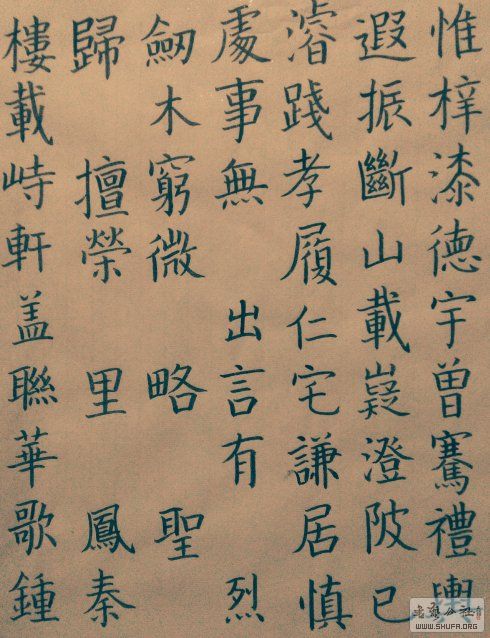 惟梓漆德宇曾騫禮輿
遐振斷山載嶷澄陂已
濬踐孝履仁宅謙居慎
處事無 出言有 烈
劒木窮微 略 聖
歸 擅榮 里 鳳秦
樓載峙軒盖聯華歌鍾
WWW.SHUFA.ORG